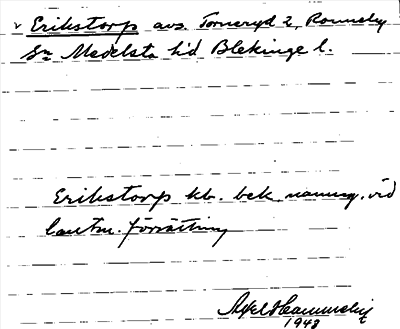 v Erikstorp avs. Torneryd 2, Ronneby
Sn Medelsta hd Blekinge l.
Erikstorp kb. bek namng. vid
lantm. förrättning
Axel
1948